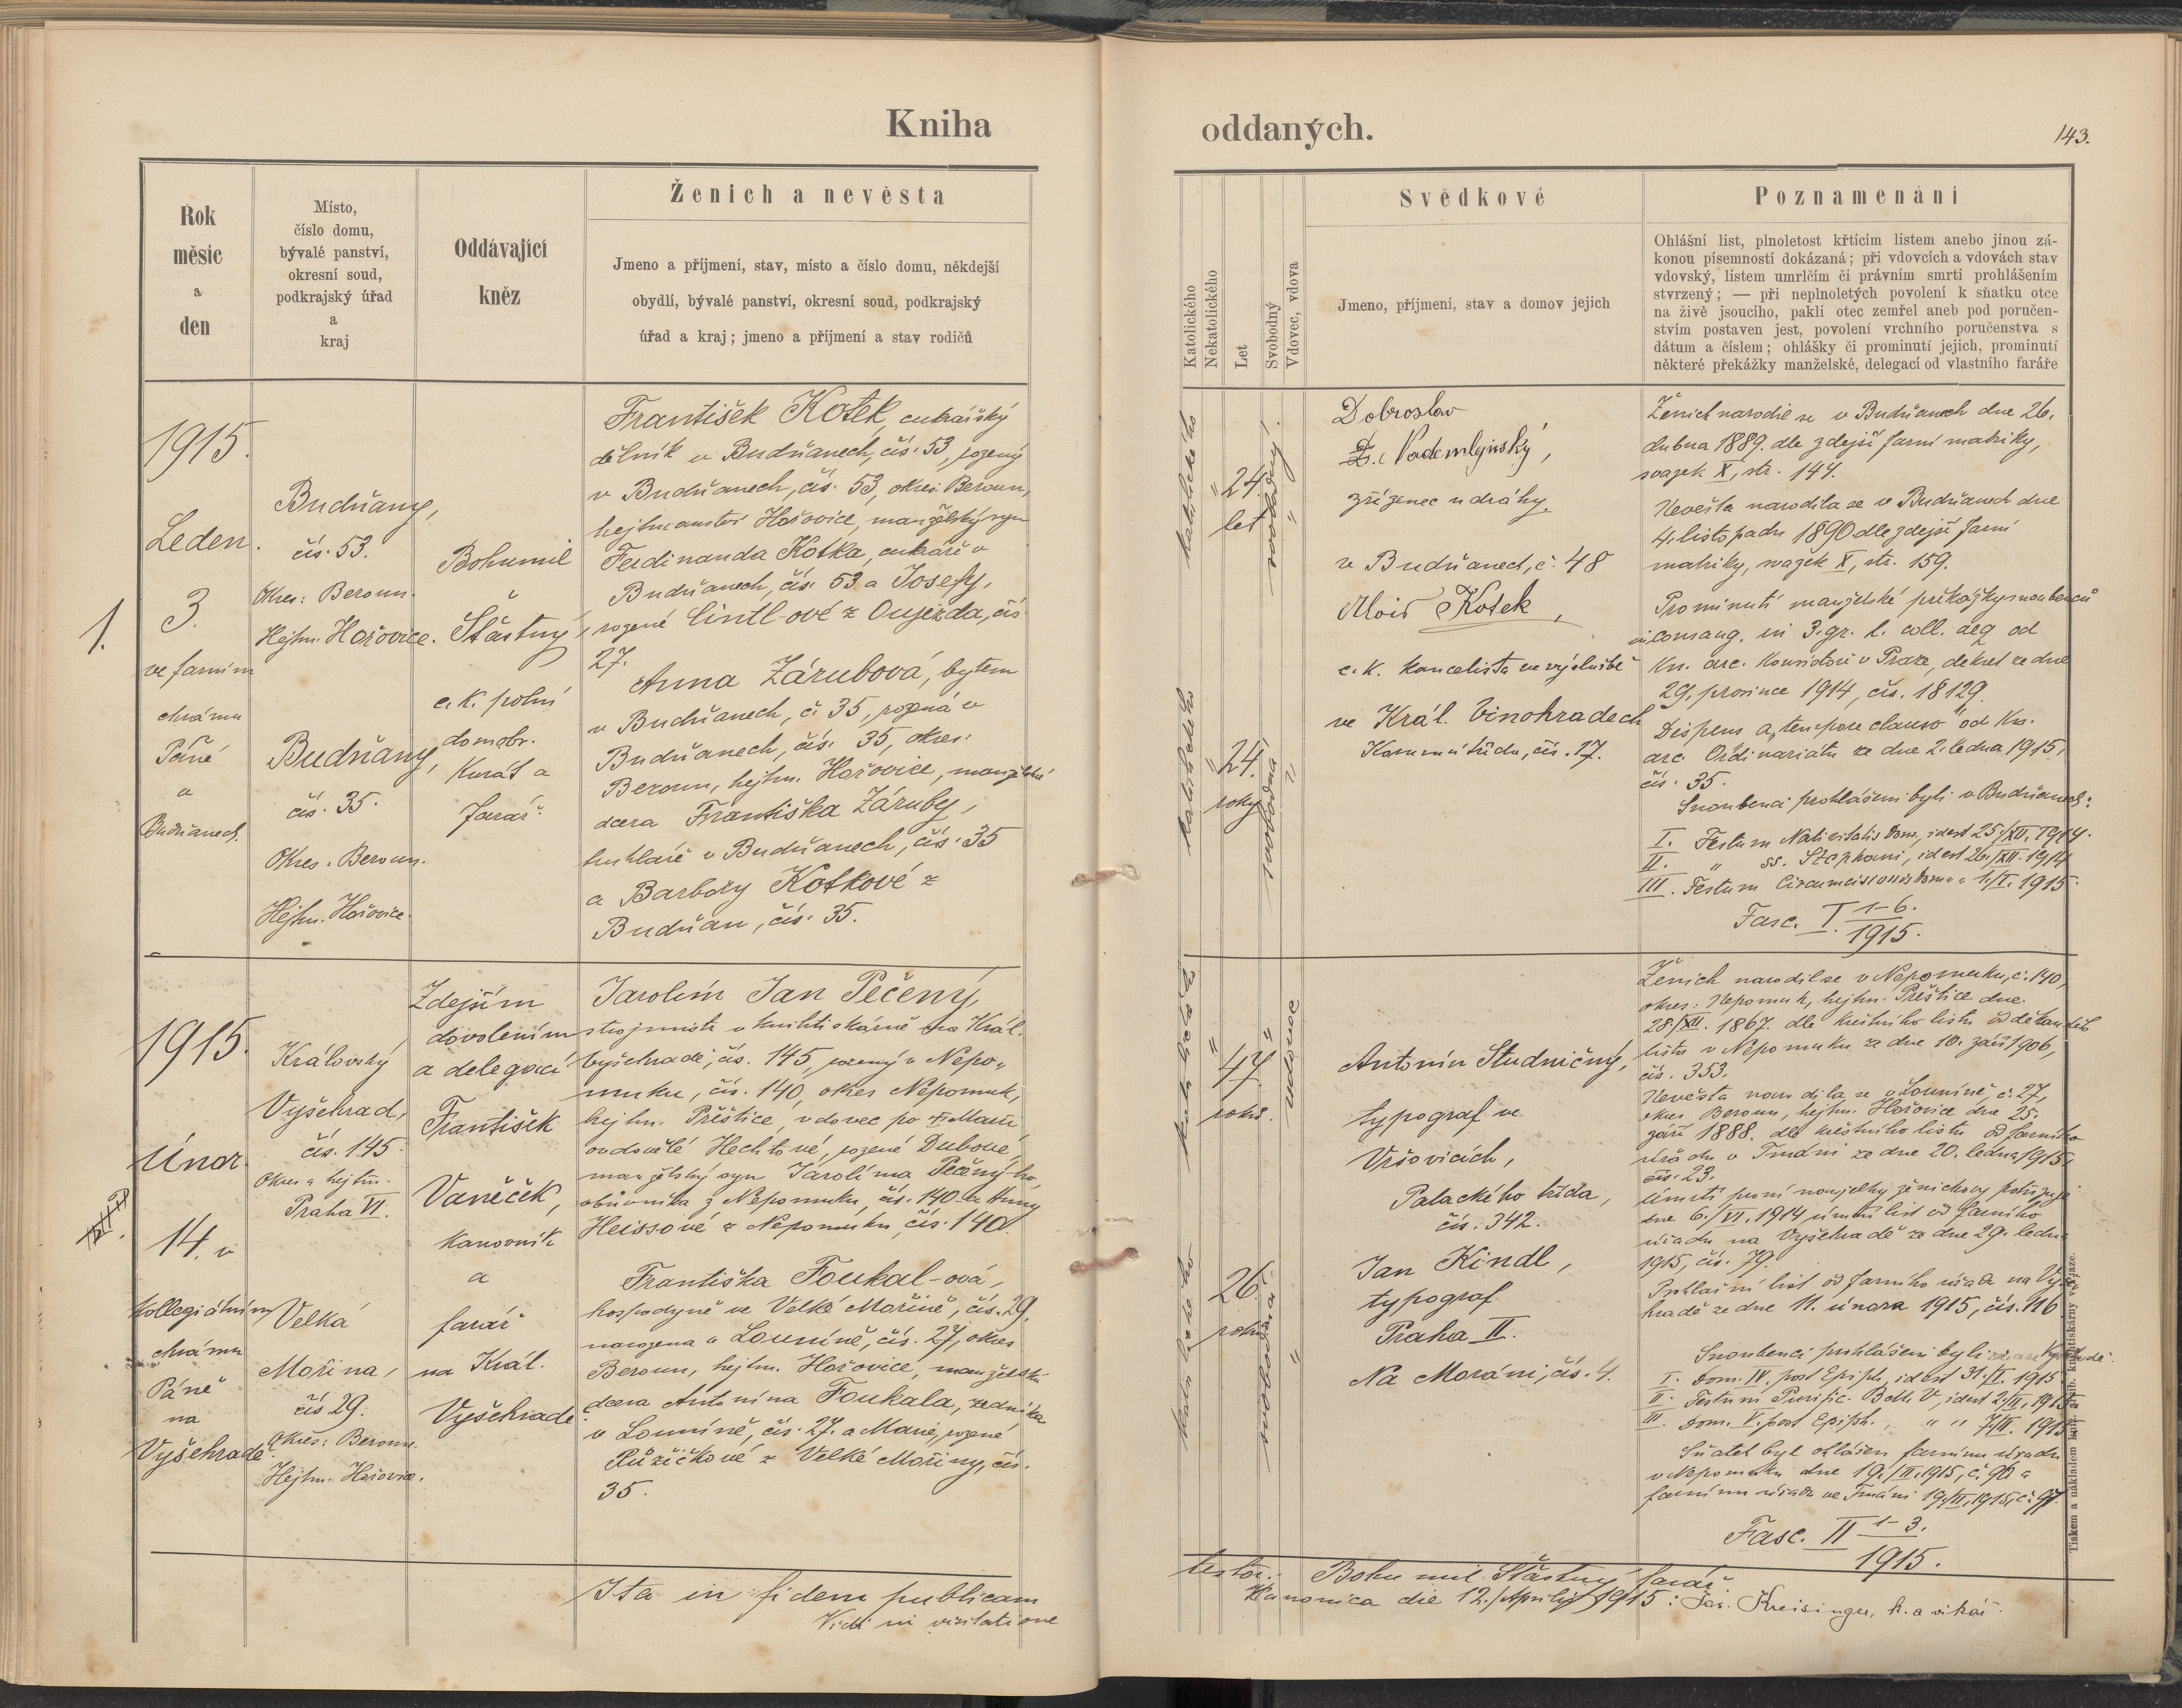 Kniha
oddaných.
143.
Rok
měsíc
a
den
Místo,
číslo domu,
bývalé panství,
okresní soud,
podkrajský úřad
a
kraj
Oddávající
kněz
Ženich a nevěsta
Jmeno a příjmení, stav, místo a číslo domu, někdejší
obydlí, bývalé panství, okresní soud, podkrajský
úřad a kraj; jmeno a příjmení a stav rodičů
Katolického
Nekatolického
Let
Svobodný
Vdovec, vdova
Svědkové
Jmeno, příjmení, stav a domov jejich
Poznamenání
Ohlášní list, plnoletost křtícím listem anebo jinou zá-
konou písemností dokázaná; při vdovcích a vdovách stav
vdovský, listem umrlčím či právním smrti prohlášením
stvrzený; — při neplnoletých povolení k sňatku otce
na živě jsoucího, pakli otec zemřel aneb pod poručen-
stvím postaven jest, povolení vrchního poručenstva s
dátum a číslem; ohlášky či prominutí jejich, prominutí
některé překážky manželské, delegací od vlastního faráře
1.
1915.
Leden.
3.
ve farním
chrámu
Páně
v
Budňanech.
Budňany,
čís. 53.
Okres: Beroun.
Hejtm. Hořovice.
Budňany,
čís. 35.
Okres. Beroun.
Hejtm. Hořovice.
Bohumil
Šťastný,
c. k. polní
domobr.
Kurát a
farář.
František Kotek, cukrářský
dělník v Budňanech, čís. 53, rozený
v Budňanech, čís. 53, okres. Beroun,
hejtmanství Hořovice, manželský syn
Ferdinanda Kotka, cukráře v
Budňanech, čís. 53 a Josefy,
rozené Cintl-ové z Oujezda, čís.
27.
Anna Zárubová, bytem
v Budňanech, č. 35, rozená v
Budňanech, čís. 35, okres.
Beroun, hejtm. Hořovice, manželská
dcera Františka Záruby,
truhláře v Budňanech, čís. 35
a Barbory Kotkové z
Budňan, čís. 35.
katolického
" 24
let
svobodný.
"
katolického
" 24.
roky
svobodná
"
Dobroslav
Nademlýnský,
zřízenec u dráhy.
v Budňanech, č. 48
Alois Kotek,
c. k. kancelista ve výslužbě
ve Král. Vinohradech
čís. 17.
Ženich narodil se v Budňanech dne 26.
dubna 1889. dle zdejší farní matriky,
svazek X, str. 144.
Nevěsta narodila se v Budňanech dne
4. listopadu 1890 dle zdejší farní
matriky, svazek X, str. 159.
Prominutí manželské překážky snoubenců
consang. in 3. gr. l. coll. aeq od
Kn. arc. Konsistoře v Praze, dekret ze dne
29. prosince 1914, čís. 18129.
Dispens a „tempore clauso" od Kn.
arc. Ordinariátu ze dne 2. ledna 1915,
čís. 35.
Snoubenci prohlášeni byli v Budňanech:
I. Festum Nativitatis Dom., id est 25./XII. 1914.
II. " ss. Stephani, id est 26./XII. 1914
III. Festum Circumcisionis Dom. " 1./I. 1915.
Fasc. I. 1–6.
1915.
1915.
Únor
14. v
kollegiátním
chrámu
Páně
na
Vyšehradě.
Královský
Vyšehrad,
čís. 145
Okres a hejtm.
Praha VI.
Velká
Mořina,
čís 29.
Okres: Beroun.
Hejtm. Hořovice.
Zdejším
dovolením
a delegací
František
Vaněček,
kanovník
a
farář
na Král.
Vyšehradě.
Jarolím Jan Pečený,
strojmistr v knihtiskárně na Král.
Vyšehradě, čís. 145, rozený v Nepo-
muku, čís. 140, okres Nepomuk,
hejtm. Přeštice, vdovec po † Marii
ovdovělé Hechtové, rozené Dubové,
manželský syn Jarolíma Pečený-ho,
obuvníka z Nepomuku, čís. 140 a Anny
Heissové z Nepomuku, čís. 140.
Františka Foukal-ová,
hospodyně ve Velké Mořině, čís. 29,
narozena v Louníně, čís. 27, okres
Beroun, hejtm. Hořovice, manželská
dcera Antonína Foukala, zedníka
v Louníně, čís. 27. a Marie, rozené
Růžičkové z Velké Mořiny, čís.
35.
katolického
" 47
roků.
vdovec
"
katolického
26
roků
svobodná
"
Antonín Studničný,
typograf ve
Vršovicích,
Palackého třída,
čís. 342.
Jan Kindl,
typograf
Praha II.
Na Moráni, čís. 4.
Ženich narodil se v Nepomuku, č. 140,
okres: Nepomuk, hejtm. Přeštice dne
28./XII. 1867. dle křestního listu od děkanského
listu v Nepomuku ze dne 10. září 1906,
čís. 353.
Nevěsta narodila se v Louníně, č. 27,
okres Beroun, hejtm. Hořovice dne 25.
září 1888. dle křestního listu od farního
úřadu v Tmáni ze dne 20. ledna 1915,
čís. 23.
Úmrtí první manželky ženichovy potvrzuje
dne 6./VI. 1914 úmrtní list od farního
úřadu na Vyšehradě ze dne 29. ledna
1915, čís. 79.
Prohlašní list od farního úřadu na Vyše-
hradě ze dne 11. února 1915, čís. 116
Snoubenci prohlášeni byli
I. Dom. IV. post Epiph, id est 31./I. 1915
II. Festum Purific. B. M. V, id est 2./II. 1915
III. Dom. V. post Epiph., " " 7./II. 1915
Sňatek byl ohlášen farnímu úřadu
v Nepomuku dne 19./II. 1915, č. 96 a
farnímu úřadu ve Tmáni 19./II. 1915, č. 97.
Fasc. II 1–3.
1915.
Ita in fidem publicam
testor: Bohumil Šťastný farář
Vidi in visitatione
Kanonica die 12./Aprilis 1915: Jos. Kreisinger, k. a vikář.